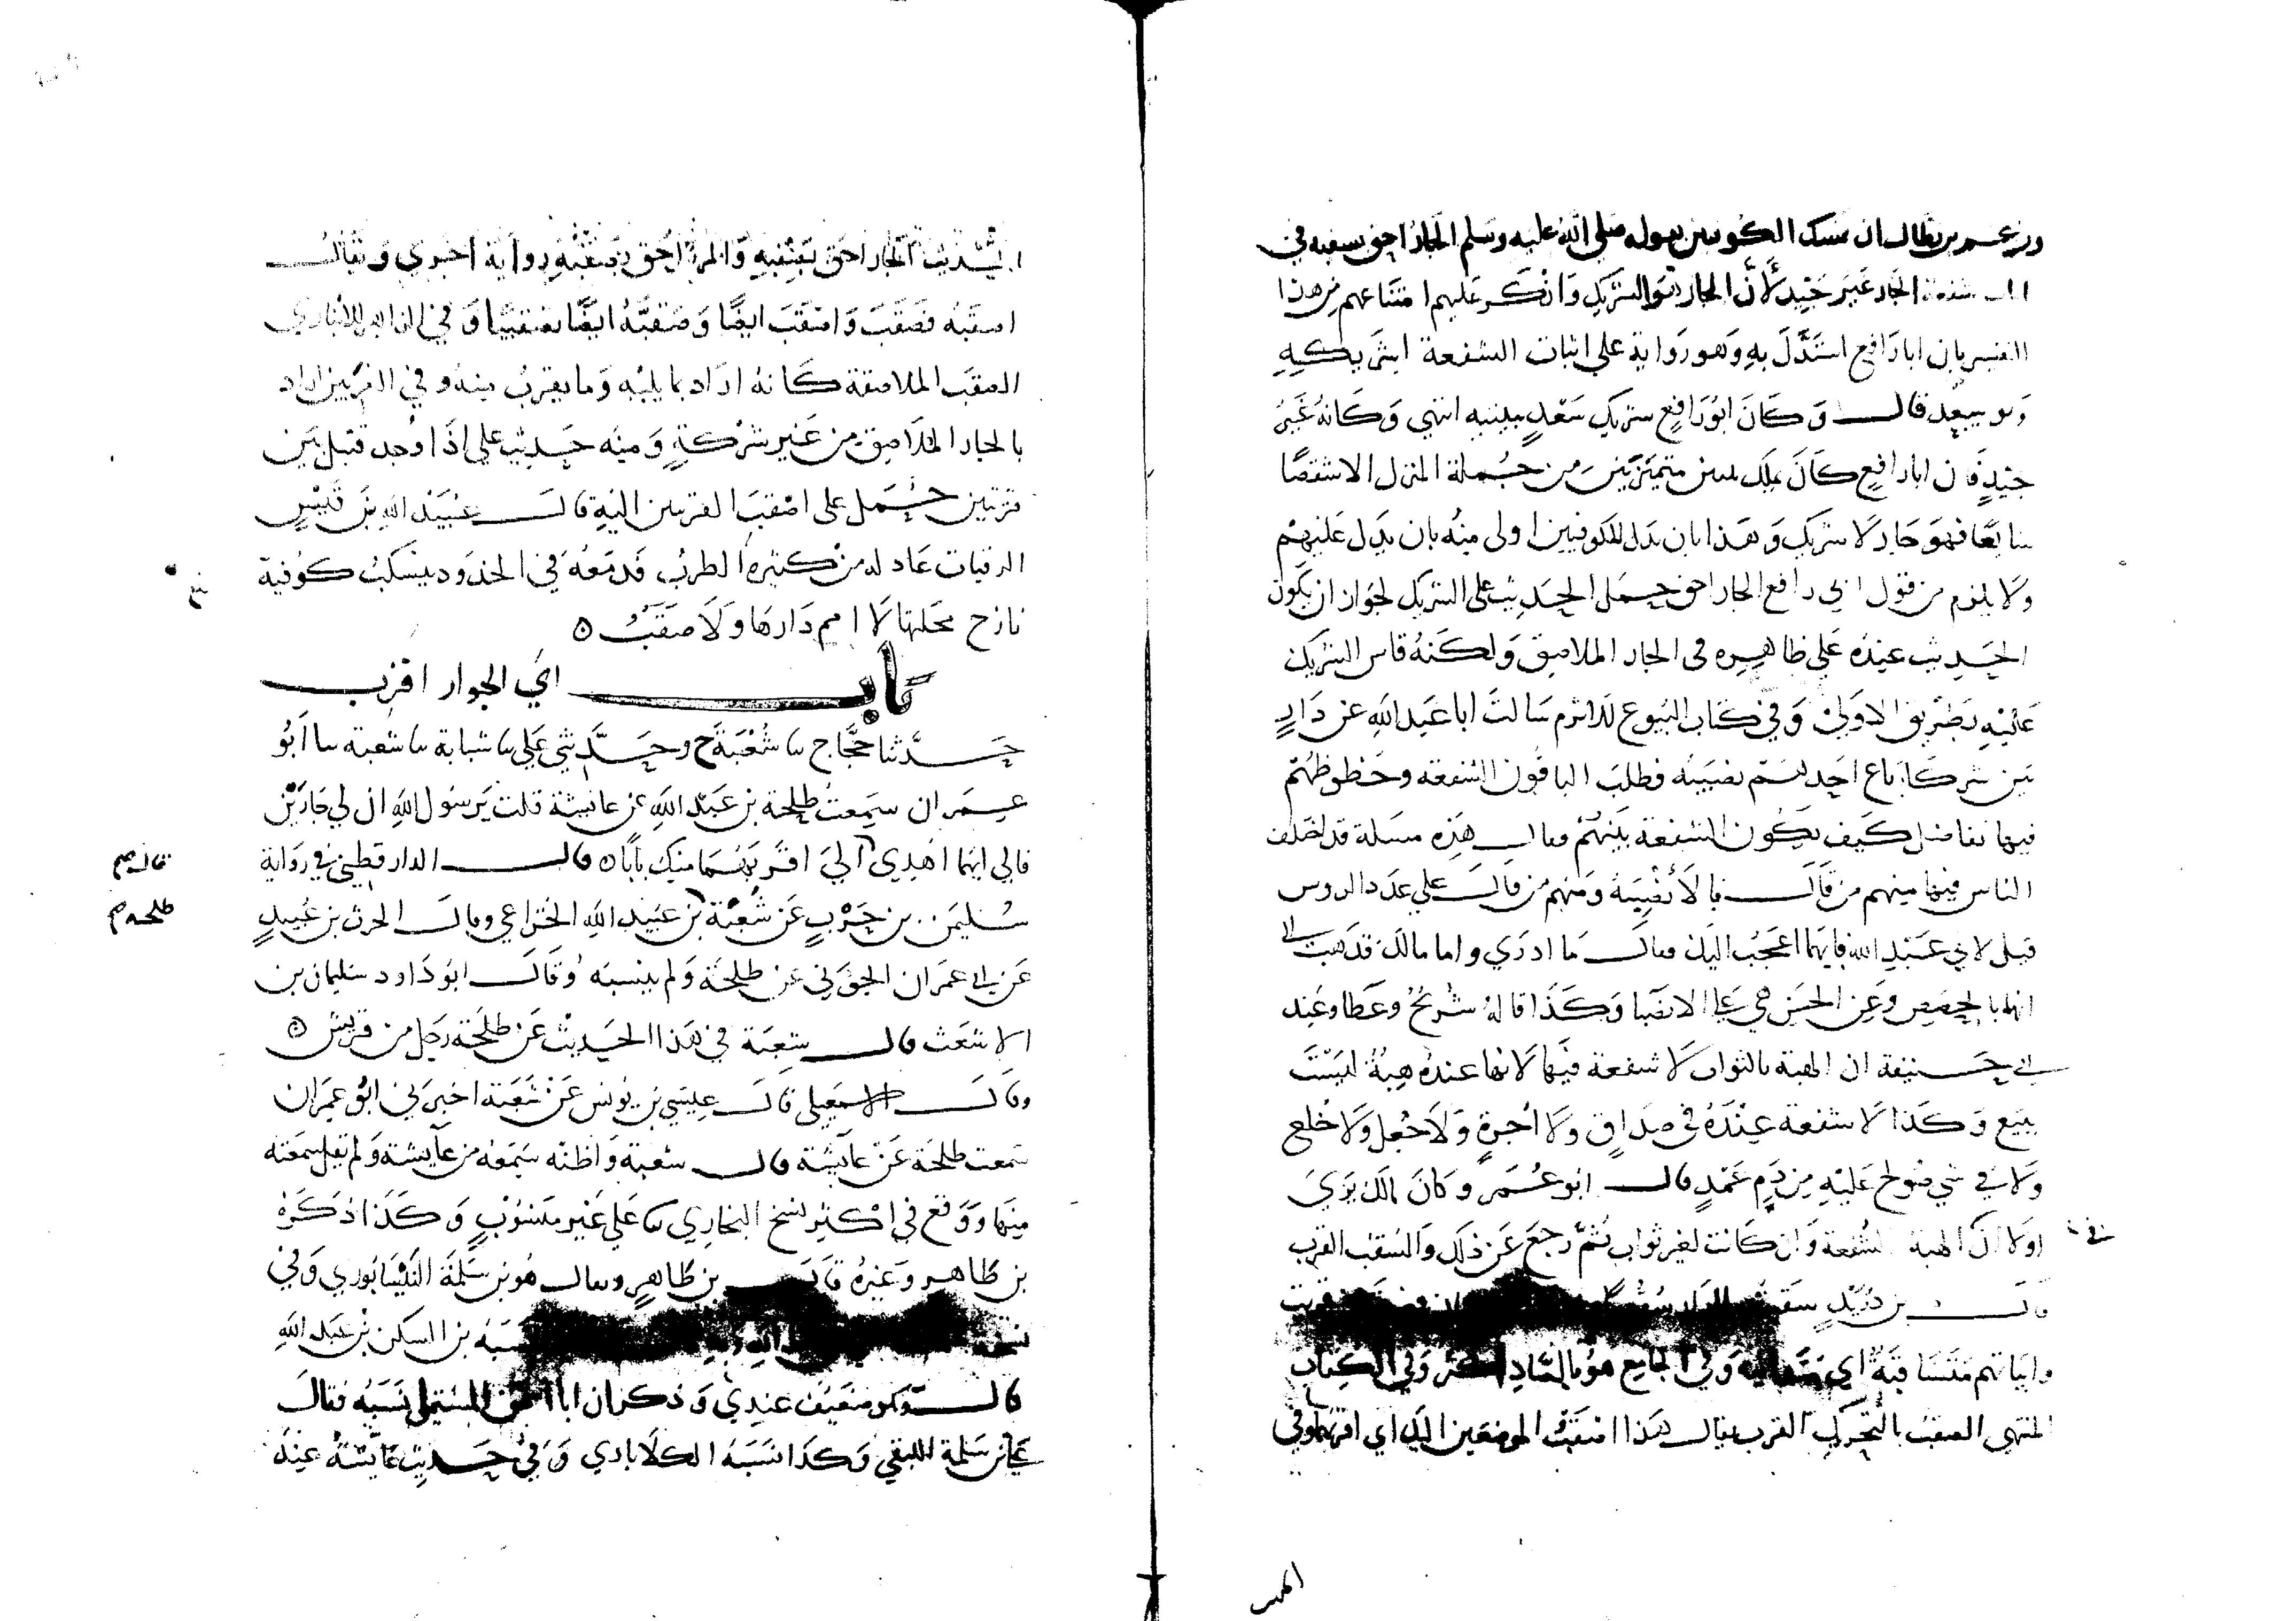 وزعم بن بطال ان تمسك الكوفيين بقوله صلى الله عليه وسلم الجار احق بسقبه في
شفعة الجار غير جيد لأن الجار هو الشريك وانكر عليهم امتناعهم من هذا
التفسير بان ابا رافع استدل به وهو رواية علي اثبات الشفعة لشريكه
وهو سعد قال وكان ابو رافع شريك سعد ببيتيه انتهي وكانه غير
جيد فان ابا رافع كان يملك بيتين متميزين من جملة المنزل لا شقصا
شايعا فهو جار لا شريك وهذا بان يدل للكوفيين اولى منه بان يدل عليهم
ولا يلزم من قول ابي رافع الجار احق حمل الحديث على الشريك لجواز ان يكون
الحديث عنده علي ظاهره في الجار الملاصق ولكنه قاس الشريك
عليه بطريق الاولى وفي كتاب البيوع للاثرم سالت ابا عبد الله عن دار
بين شركا باع احدهم نصيبه فطلب الباقون الشفعة وحظوظهم
فيها تفاضل كيف تكون الشفعة بينهم فقال هذه مسلة قد اختلف
الناس فيها منهم من قال بالأنصبة ومنهم من قال علي عدد الروس
قيل لابي عبد الله فايهما اعجب اليك فقال ما ادري واما مالك فذهب الى
انها بالحصص وعن الحسن هي علي الانصبا وكذا قاله شريح وعطا وعند
ابي حنيفة ان الهبة بالثواب لا شفعة فيها لانها عنده هبة ليست
ببيع وكذا لا شفعة عنده في صداق ولا اجرة ولا جعل ولا خلع
ولا في شي صولح عليه من دم عمد قال ابو عمر وكان مالك يرى
اولا ان الهبة الشفعة وان كانت لغير ثواب ثم رجع عن ذلك والسقب القرب
في
قال بن دريد
وابياتهم متساقبة اي وفي الجامع هو بالصاد اكثر وفي الكتاب
المنتهى الصقب بالتحريك القرب يقال هذا اصقب الموضعين اليك اي اقربهما وفي
الحديث الجار احق بصقبه والمرا احق بصقبه رواية اخرى ويقال
اصقبه فصقب واصقب ايضا وصقبه ايضا تصقيبا وفي للأنباري
الصقب الملاصقة كانه اراد بما يليه وما يقرب منه وفي الغريبين اراد
بالجار الملاصق من غير شركة ومنه حديث علي اذا وجد قتيل بين
قريتين حمل على اصقب القريتين اليه قال عبيد الله بن قيس
الرقيات عاد له من كثيره الطرب فدمعه في الخدود ينسكب كوفية
نازح محلتها لا امم دارها ولا صقب
باب اي الجوار اقرب
حدثنا حجاج ثنا شعبة ح وحدثني علي ثنا شبابة ثنا شعبة ثنا أبو
عمران سمعت طلحة بن عبد الله عن عائشة قلت يرسول الله ان لي جارين
فالي ايهما اهدي الي اقربهما منك بابا قال الدارقطني في رواية
قال صح
سليمن بن حرب عن شعبة بن عبيد الله الخزاعي وقال الحرث بن عبيد
طلحة صح
عن ابي عمران الجوني عن طلحة ولم ينسبه وقال ابو داود سليمان بن
الاشعث قال شعبة في هذا الحديث عن طلحة رجل من قريش
وقال الاسمعيلي قال عيسي بن يونس عن شعبة اخبرني ابو عمران
سمعت طلحة عن عائشة قال شعبة واظنه سمعه من عائشة ولم يقل سمعته
منها ووقع في اكثر نسخ البخاري ثنا علي غير منسوب وكذا ذكره
بن طاهر وغيره قال بن طاهر ويقال هو بن سلمة النيسابوري وفي
نسخة نسبه بن السكن بن عبد الله
قال وهو ضعيف عندي وذكر ان ابا اسحق المستملي نسبه فقال
علي بن سلمة اللبقي وكذا نسبه الكلاباذي وفي حديث عائشة عند